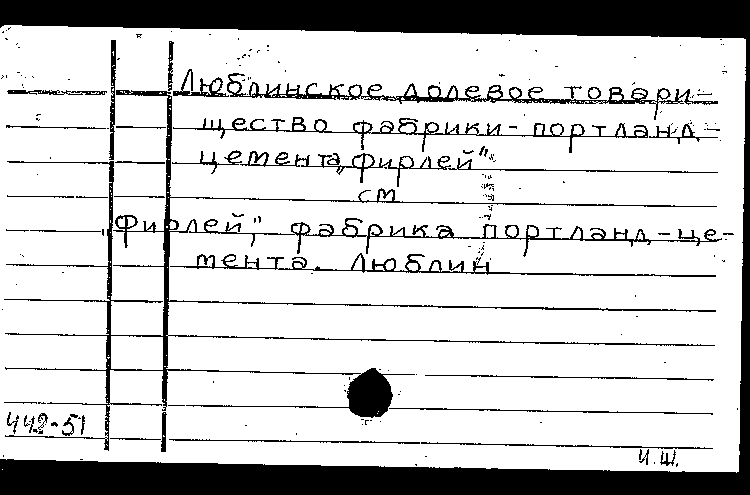 Люблинское долевое товари-
щество фабрики-портланд-
цемента „Фирлей"
см
„Фирлей", фабрика портланд-це-
мента. Люблин
442-51
И.Ш.